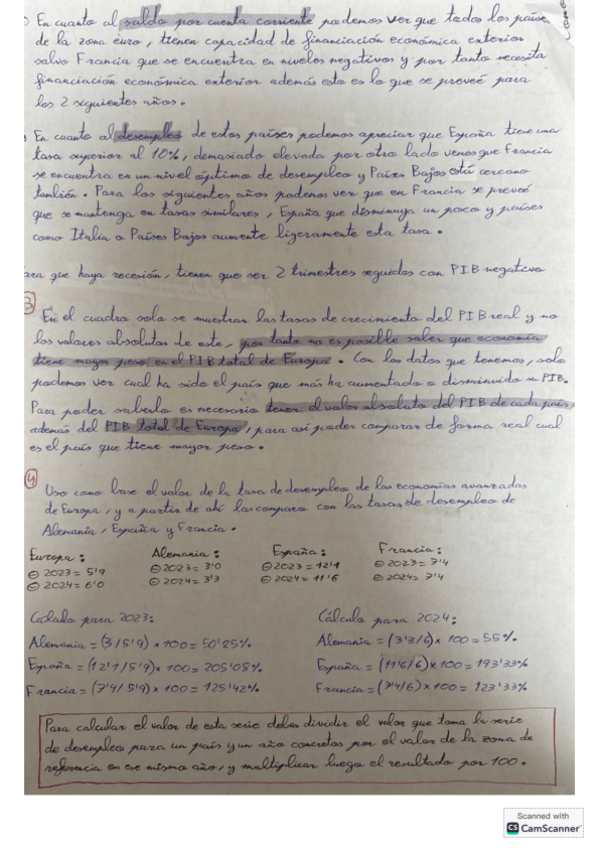 En cuanto al saldo por cuenta corriente podemos ver que todos los paíse
de la zona euro, tienen capacidad de financiación económica exterior
salvo Francia que se encuentra en niveles negativos y por tanto necesita
financiación económica exterior además esto es lo que se preveé para
los 2 siguientes años.
En cuanto al desempleo de estos países podemos apreciar que España tiene una
tasa superior al 10%, demasiado elevada por otro lado vemos que Francia
se encuentra en un nivel óptimo de desempleo y Países Bajos está cercano
también. Para los siguientes años podemos ver que en Francia se preveé
que se mantenga en tasas similares, España que disminuya un poco y países
como Italia o Países Bajos aumente ligeramente esta tasa.
ara que haya recesión, tienen que ser 2 trimestres seguidos con PIB negativo
3
En el cuadro solo se muestran las tasas de crecimiento del PIB real y no
los valores absolutos de este, por tanto no es posible saber que economía
tiene mayor peso en el PIB total de Europa. Con los datos que tenemos, solo
podemos ver cual ha sido el país que más ha aumentado o disminuido su PIB.
Para poder saberlo es necesario tener el valor absoluto del PIB de cada país,
además del PIB total de Europa, para así poder comparar de forma real cual
es el país que tiene mayor peso.
4
Uso como base el valor de la tasa de desempleo de las economías avanzadas
de Europa, y a partir de ahí las comparo con las tasas de desempleo de
Alemania, España y Francia.
Europa: Alemania: España: Francia:
2023= 5'9 2023= 3'0 2023= 12'1 2023= 7'4
2024= 6'0 2024= 3'3 2024= 11'6 2024= 7'4
Calculo para 2023: Cálculo para 2024:
Alemania = (3/5'9) x 100 = 50'85% Alemania = (3'3/6) x 100 = 55%
España = (12'1/5'9) x 100 = 205'08% España = (11'6/6) x 100 = 193'33%
Francia = (7'4/5'9) x 100 = 125'42% Francia = (7'4/6) x 100 = 123'33%
Para calcular el valor de esta serie debes dividir el valor que toma la serie
de desempleo para un país y un año concretos por el valor de la zona de
referencia en ese mismo año, y multiplicar luego el resultado por 100.
Scanned with
CS CamScanner